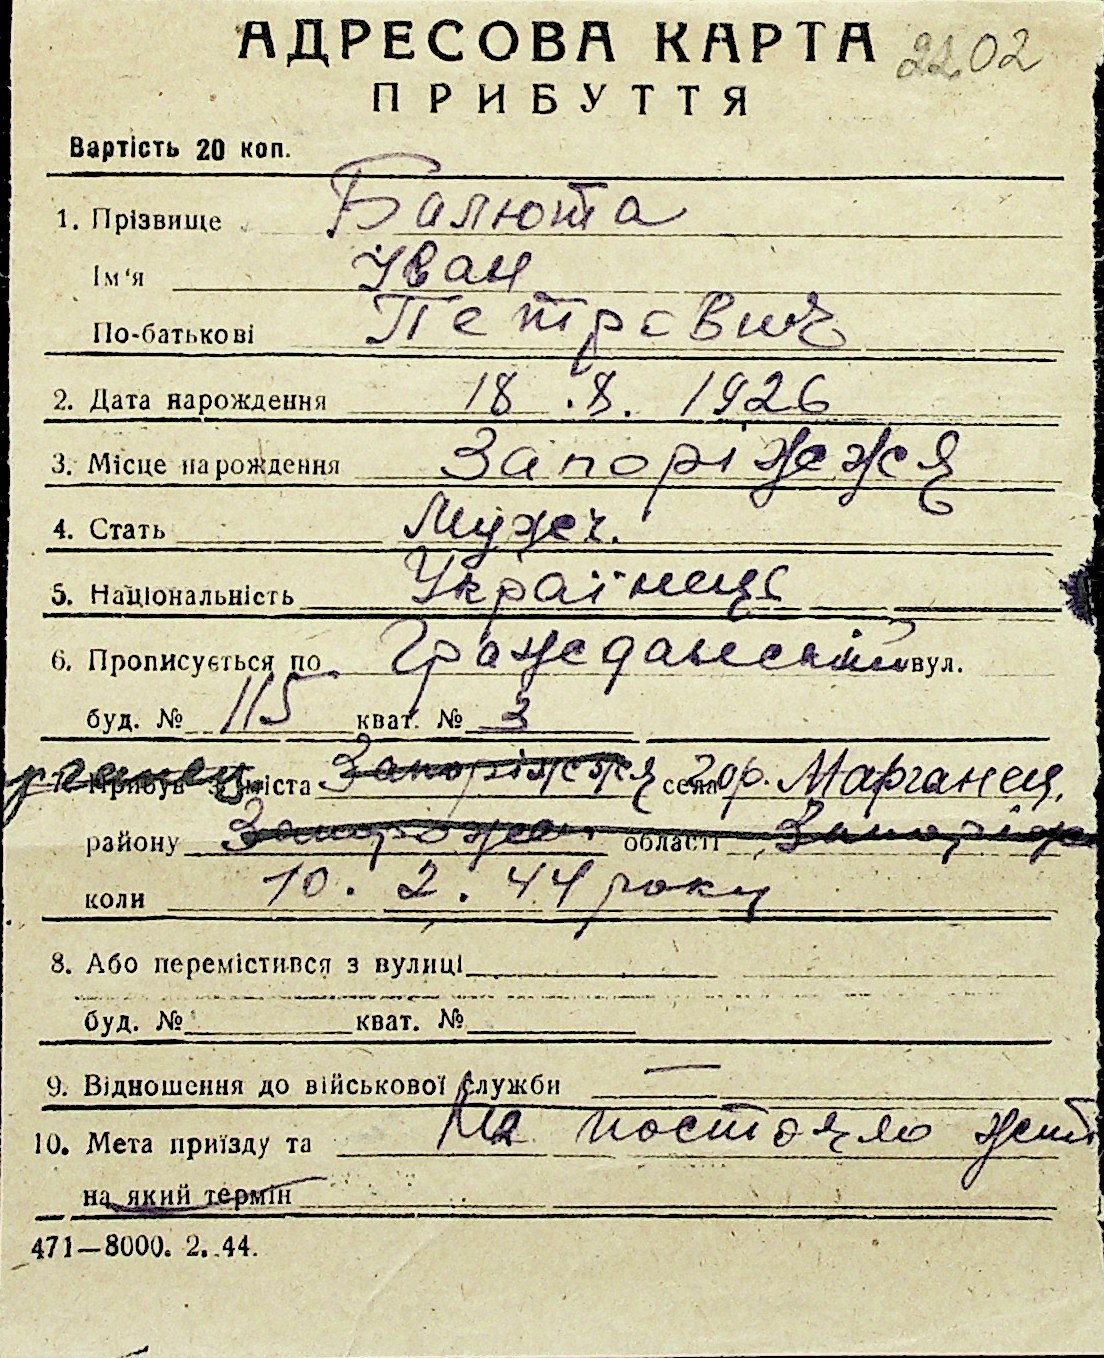 АДРЕСОВА КАРТА 22.02
ПРИБУТТЯ
Вартість 20 коп.
1. Прізвище Балюта
Ім'я Іван
По-батькові Петрович
2. Дата народження 18.8.1926
3. Місце народження Запоріжжя
4. Стать Мужч.
5. Національність Українець
6. Прописується по Гражданській вул.
буд. № 115 кват. № 3
7. Прибув з міста Запоріжжя села гор. Марганец.
району області
коли 10.2.44 року
8. Або перемістився з вулиці
буд. № кват. №
9. Відношення до військової служби —
10. Мета приїзду та На
на який термін
471—8000. 2. 44.